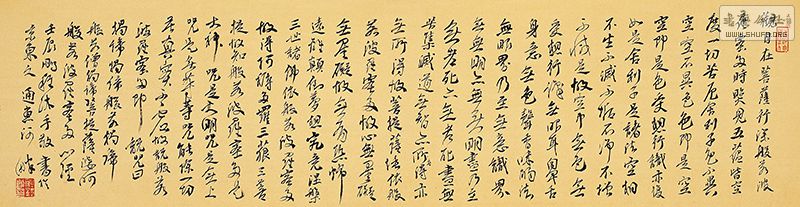 觀自在菩薩行深般若波
羅蜜多時照見五蘊皆空
度一切苦厄舍利子色不異
空空不異色色即是空
空即是色受想行識亦復
如是舍利子是諸法空相
不生不滅不垢不淨不增
不減是故空中無色無
受想行識無眼耳鼻舌
身意無色聲香味觸法
無眼界乃至無意識界
無無明亦無無明盡乃至
無老死亦無老死盡無
苦集滅道無智亦無得以
無所得故菩提薩埵依般
若波羅蜜多故心無罣礙
無罣礙故無有恐怖
遠離顛倒夢想究竟涅槃
三世諸佛依般若波羅蜜多
故得阿耨多羅三藐三菩
提故知般若波羅蜜多是
大神咒是大明咒是無上
咒是無等等咒能除一切
苦真實不虛故說般若
波羅蜜多咒即說咒曰
揭諦揭諦般若揭諦
般若僧揭諦菩提薩婆訶
般若波羅蜜多心經
壬辰
WWW.SHUFA.ORG